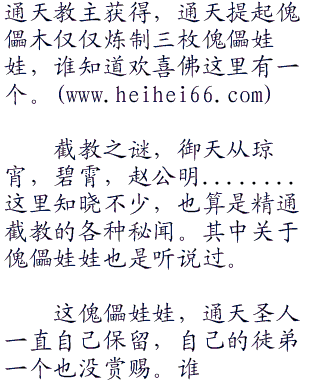 通天教主获得，通天提起傀
儡木仅仅炼制三枚傀儡娃
娃，谁知道欢喜佛这里有一
个。(www.heihei66.com)
　　截教之谜，御天从琼
宵，碧霄，赵公明........
这里知晓不少，也算是精通
截教的各种秘闻。其中关于
傀儡娃娃也是听说过。
　　这傀儡娃娃，通天圣人
一直自己保留，自己的徒弟
一个也没赏赐。谁